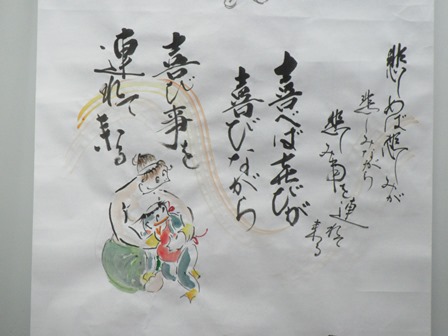 悲しめば悲しみが
悲しみながら
悲しみ事を連れて
来る
喜べば喜びが
喜びながら
喜び事を
連れて来る